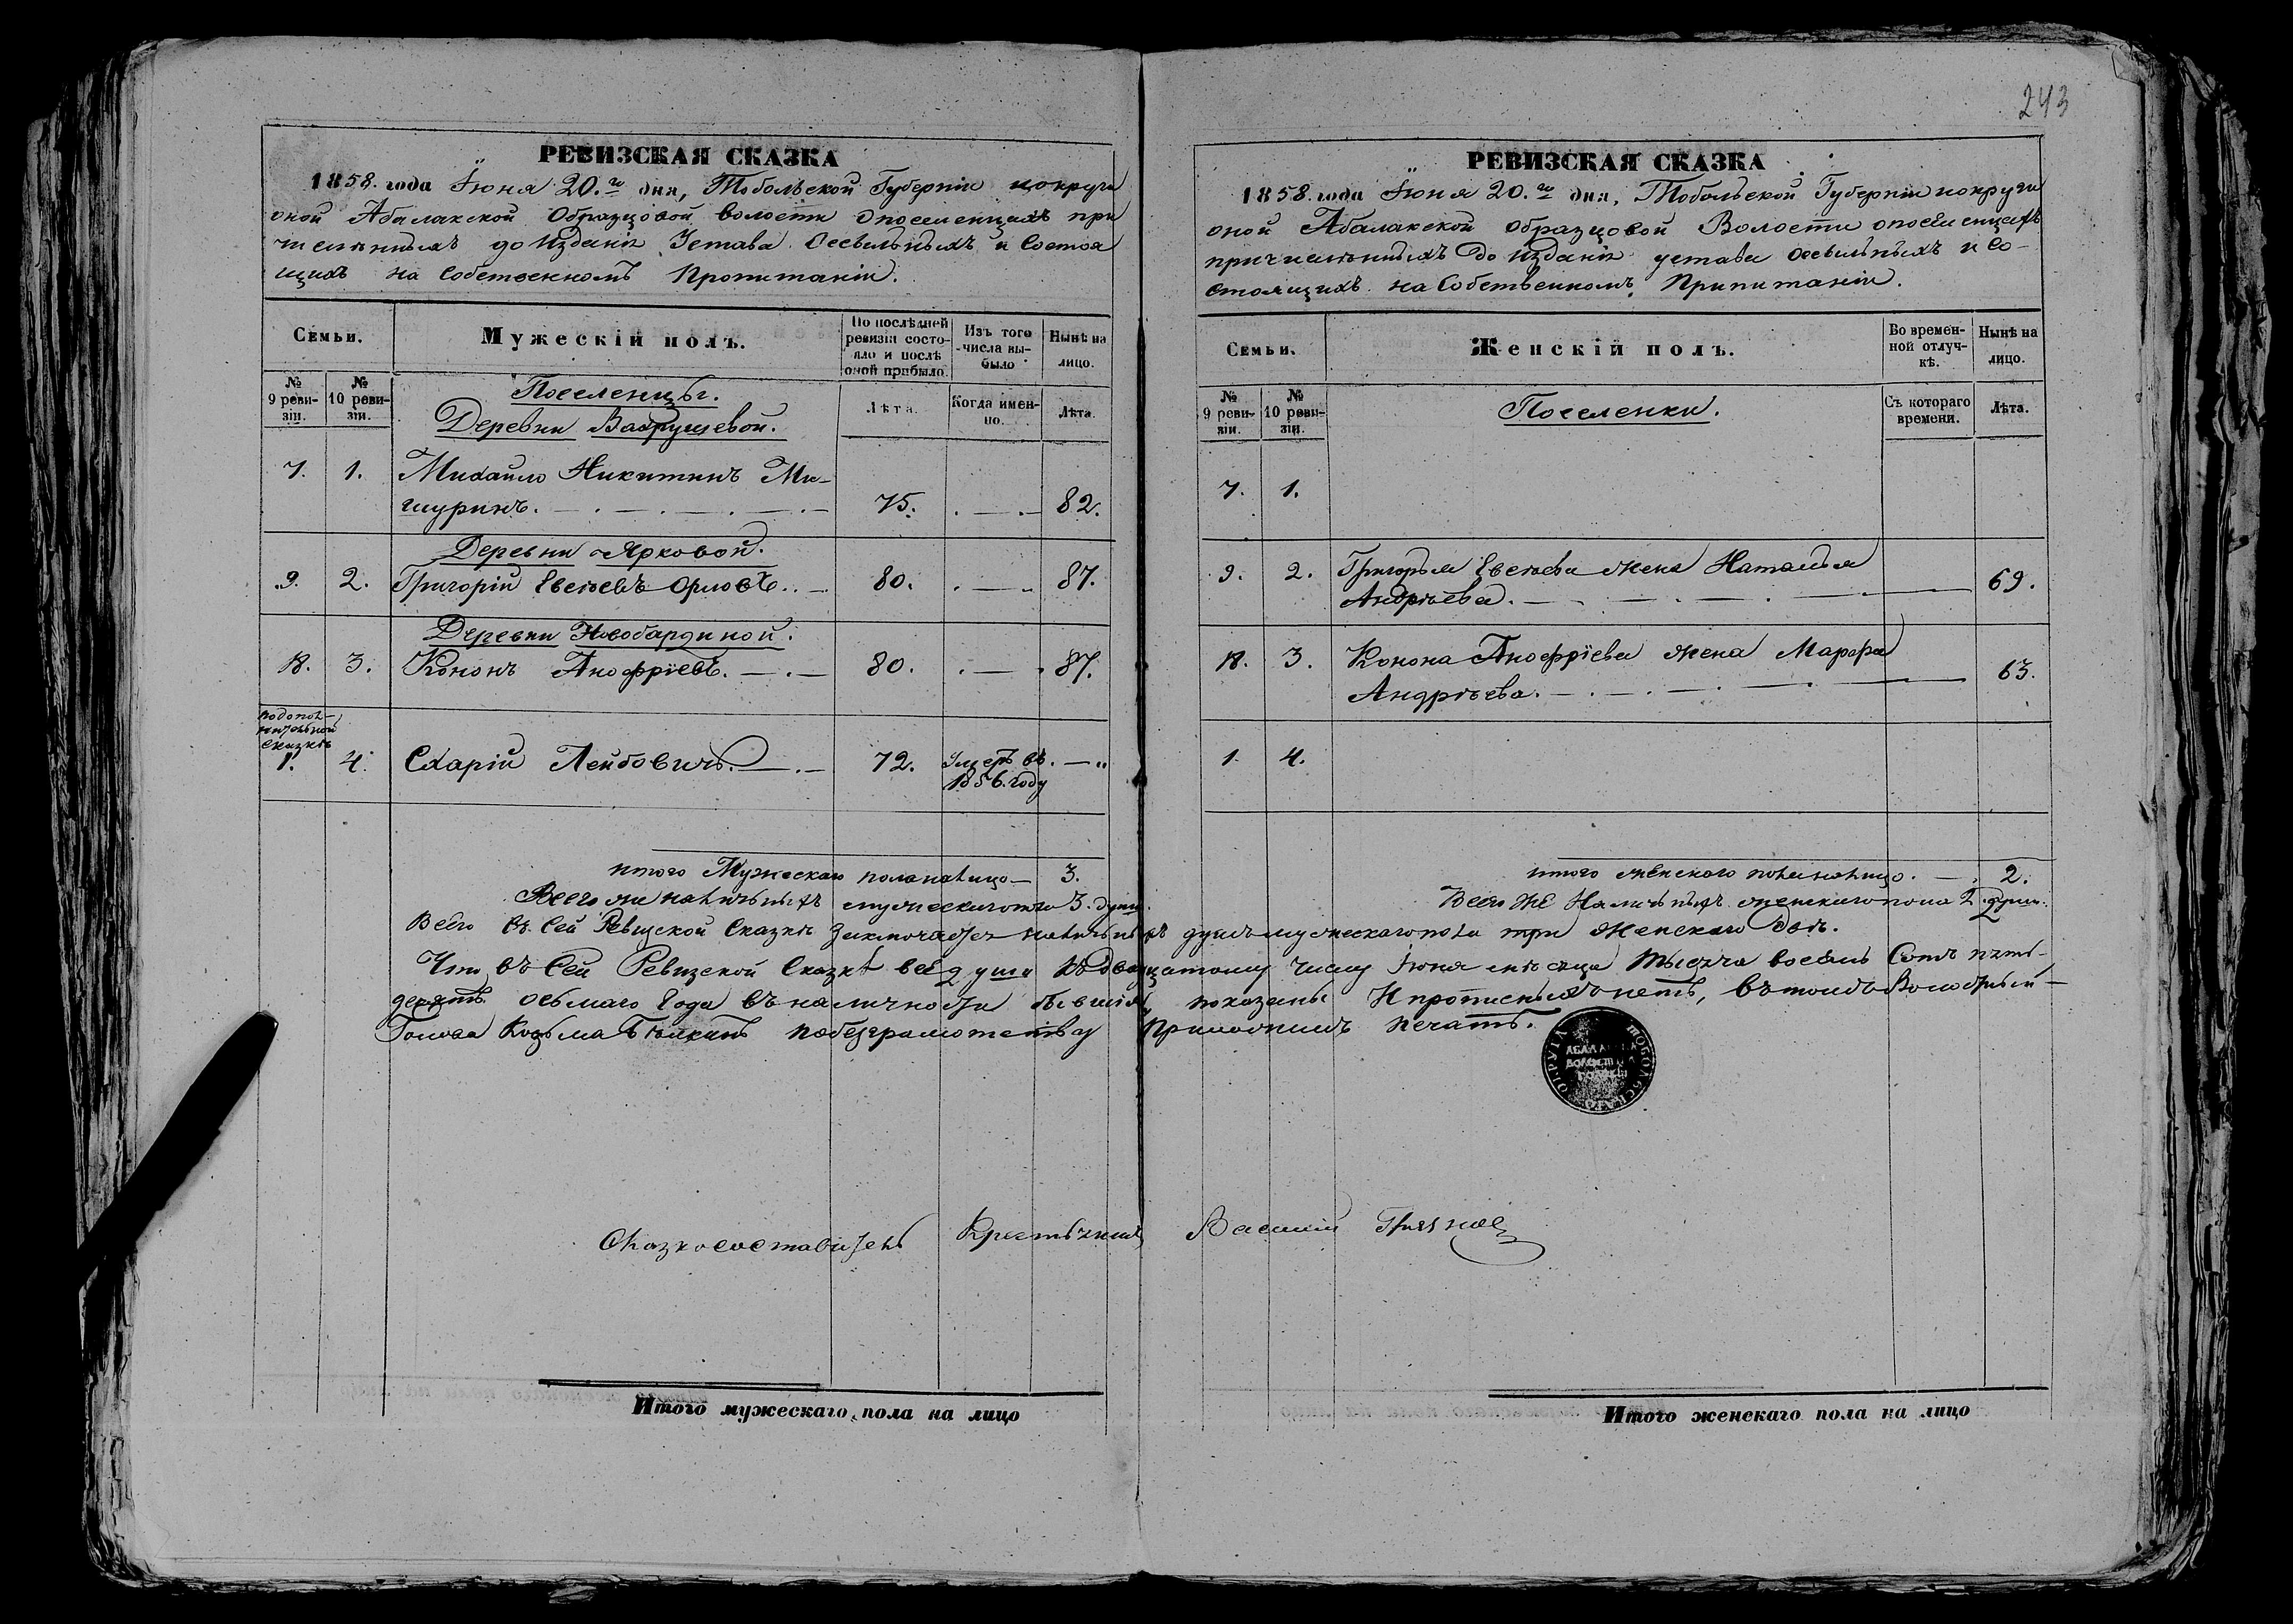 243
РЕВИЗСКАЯ СКАЗКА
1858. года Іюня 20.го дня, Тобольской Губерніи и округи
оной Абалакской Образцовой волости о поселенцахъ при
численныхъ до изданія Устава о ссыльныхъ и состоя
щихъ на собственномъ пропитаніи.
Семьи.
Мужескій полъ.
По послѣдней ревизіи состояло и послѣ оной прибыло.
Изъ того числа выбыло
Нынѣ на лицо.
№ 9 ревизіи.
№ 10 ревизіи.
Лѣта.
Когда именно.
Лѣта.
Поселенцы.
Деревни Вахрушевой.
7. 1. Михайло Никитинъ Ми-
шуринъ. 75. 82.
Деревни Ярковой.
9. 2. Григорій Евсѣевъ Орловъ. 80. 87.
Деревни Новобардиной.
18. 3. Кононъ Анофріевъ. 80. 87.
по допол-
нительной
сказкѣ
1. 4. Схарій Лейбовичъ. 72. Умеръ въ
1856. году
итого Мужескаго пола на лицо 3.
Всего же наличныхъ мужескаго пола 3. души.
РЕВИЗСКАЯ СКАЗКА
1858. года Іюня 20.го дня, Тобольской Губерніи и округи
оной Абалакской образцовой Волости о поселенцахъ
причисленныхъ до изданія устава о ссыльныхъ и со-
стоящихъ на собственномъ Припитаніи.
Семьи.
Женскій полъ.
Во временной отлучкѣ.
Нынѣ на лицо.
№ 9 ревизіи.
№ 10 ревизіи.
Съ котораго времени.
Лѣта.
Поселенки.
7. 1.
9. 2. Григорья Евсѣева жена Наталья
Андрѣева. 69.
18. 3. Конона Анофріева жена Марфа
Андрѣева. 63.
1 4.
итого женского пола на лицо. 2.
Всего же Наличныхъ женскаго пола 2 души.
Всего въ сей Ревизской Сказкѣ заключается наличныхъ душъ мужескаго пола три женскаго двѣ.
Что въ сей Ревизской Сказкѣ всѣ души къ двадцатому числу Іюня мѣсяца тысяча восемь сотъ пять-
десятъ осьмаго года въ наличности бывшія показаны и прописныхъ нетъ, въ томъ Волостный
Голова Козьма по безграмотству приложилъ печать.
ТОБОЛЬСКАГО ОКРУГА
Сказкосоставитель Крестьянинъ Василій
Итого мужескаго пола на лицо
Итого женскаго пола на лицо